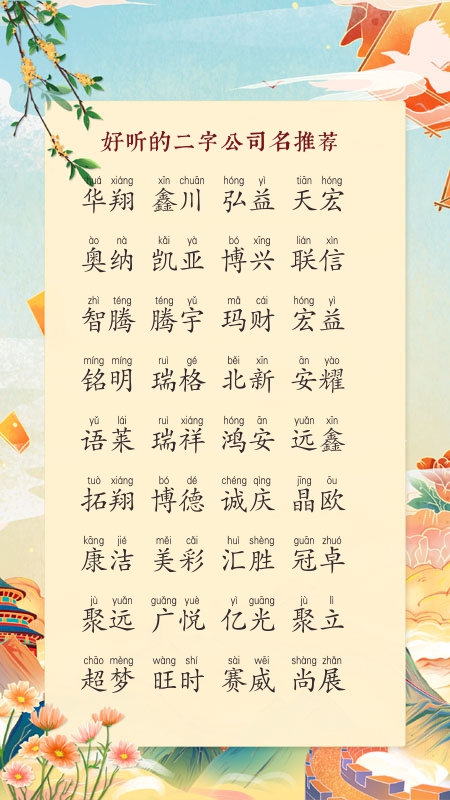 好听的二字公司名推荐
huá xiáng xīn chuān hóng yì tiān hóng
华翔 鑫川 弘益 天宏
ào nà kǎi yà bó xīng lián xìn
奥纳 凯亚 博兴 联信
zhì téng téng yǔ mǎ cái hóng yì
智腾 腾宇 玛财 宏益
míng míng ruì gé běi xīn ān yào
铭明 瑞格 北新 安耀
yǔ lái ruì xiáng hóng ān yuǎn xīn
语莱 瑞祥 鸿安 远鑫
tuò xiáng bó dé chéng qìng jīng ōu
拓翔 博德 诚庆 晶欧
kāng jié měi cǎi huì shèng guān zhuó
康洁 美彩 汇胜 冠卓
jù yuǎn guǎng yuè yì guāng jù lì
聚远 广悦 亿光 聚立
chāo mèng wàng shí sài wēi shàng zhǎn
超梦 旺时 赛威 尚展